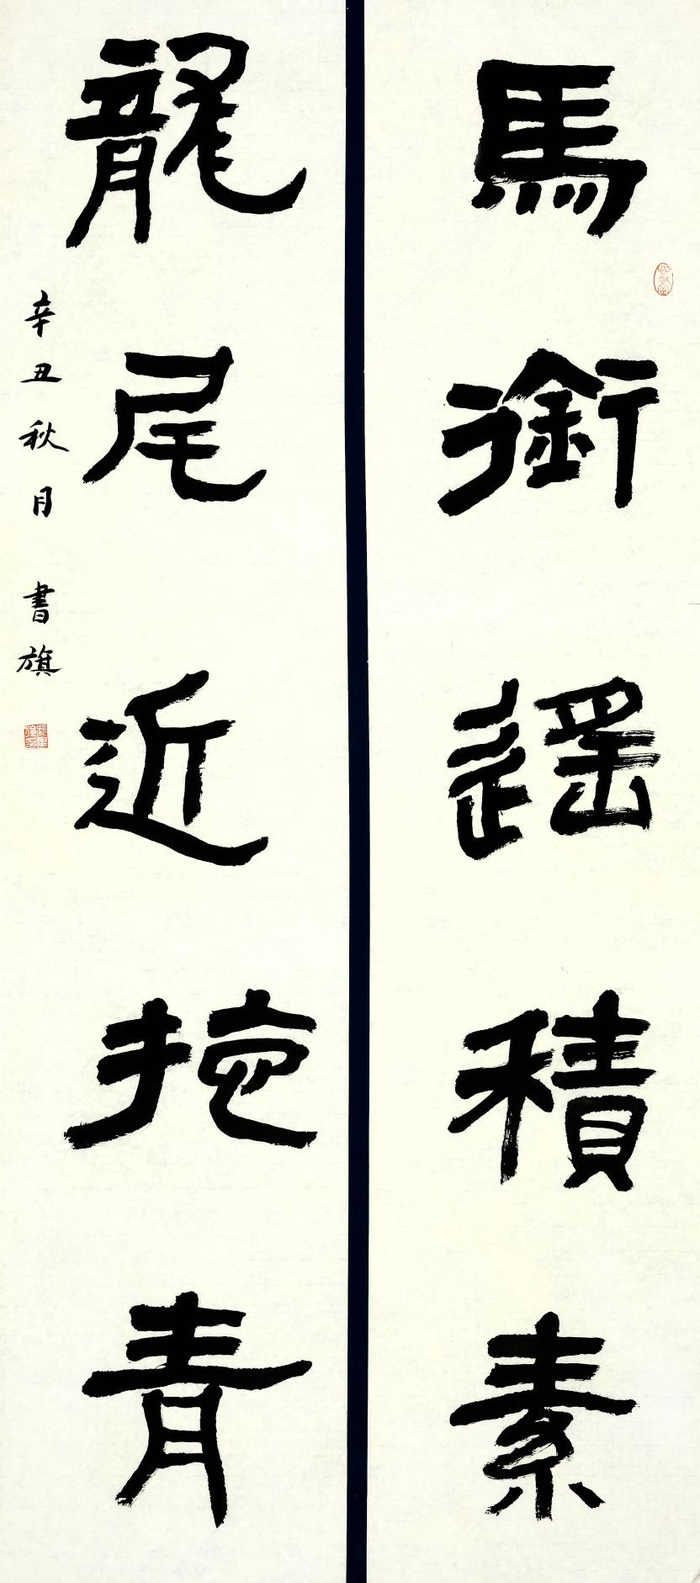 馬銜遙積素
龍尾近拕青
辛丑秋月 書旗